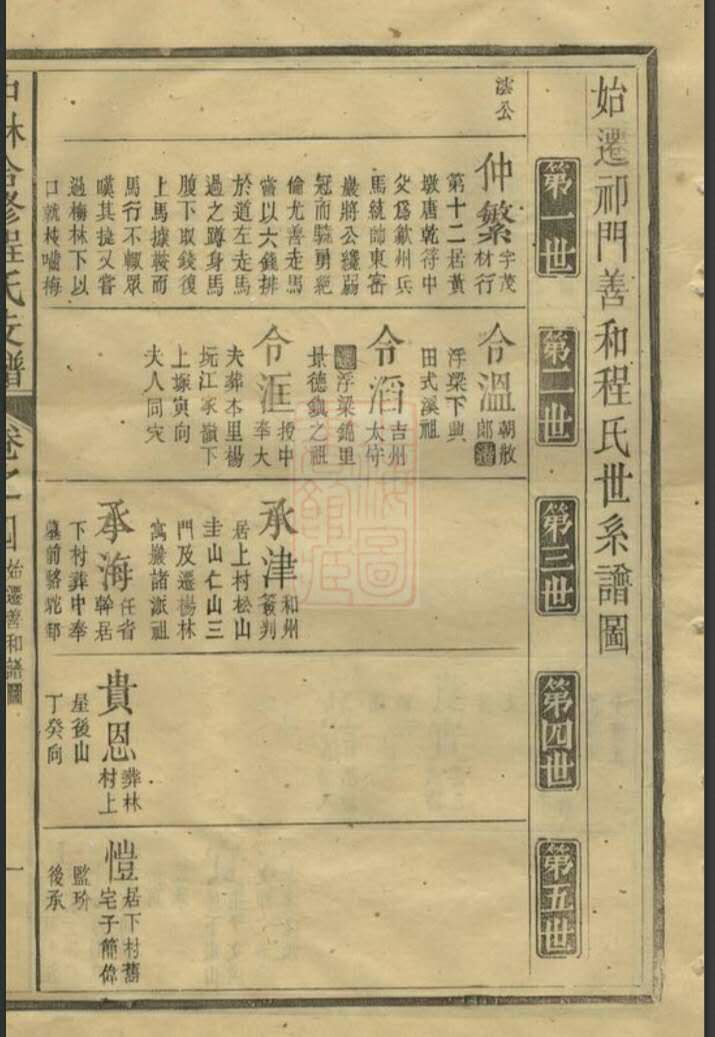 始遷祁門善和程氏世系譜圖
第一世
第二世
第三世
第四世
第五世
澐公
仲繁
字茂
材行
第十二居黃
墩唐乾符中
父爲歙州兵
馬統帥東密
巖將公纔弱
冠而驍勇絕
倫尤善走馬
嘗以六錢排
於道左走馬
過之蹲身馬
腹下取錢復
上馬據鞍而
馬行不輟眾
嘆其捷又嘗
過梅林下以
口就枝嚙梅
令溫
朝散
郎遷
浮梁下興
田式溪祖
令滔
吉州
太守
遷浮梁錦里
景德鎮之祖
令洭
授中
奉大
夫葬本里楊
坑江家嶺下
上塚寅向
夫人同穴
承津
和州
簽判
居上村松山
圭山仁山三
門及遷楊林
寓巖諸派祖
承海
任省
幹居
下村葬中奉
墓前駱駝郚
貴恩
葬林
村上
屋後山
丁癸向
愷
居下村舊
宅子簡偉
監玠
後承
程氏支譜
卷之四
始遷善和譜圖
一